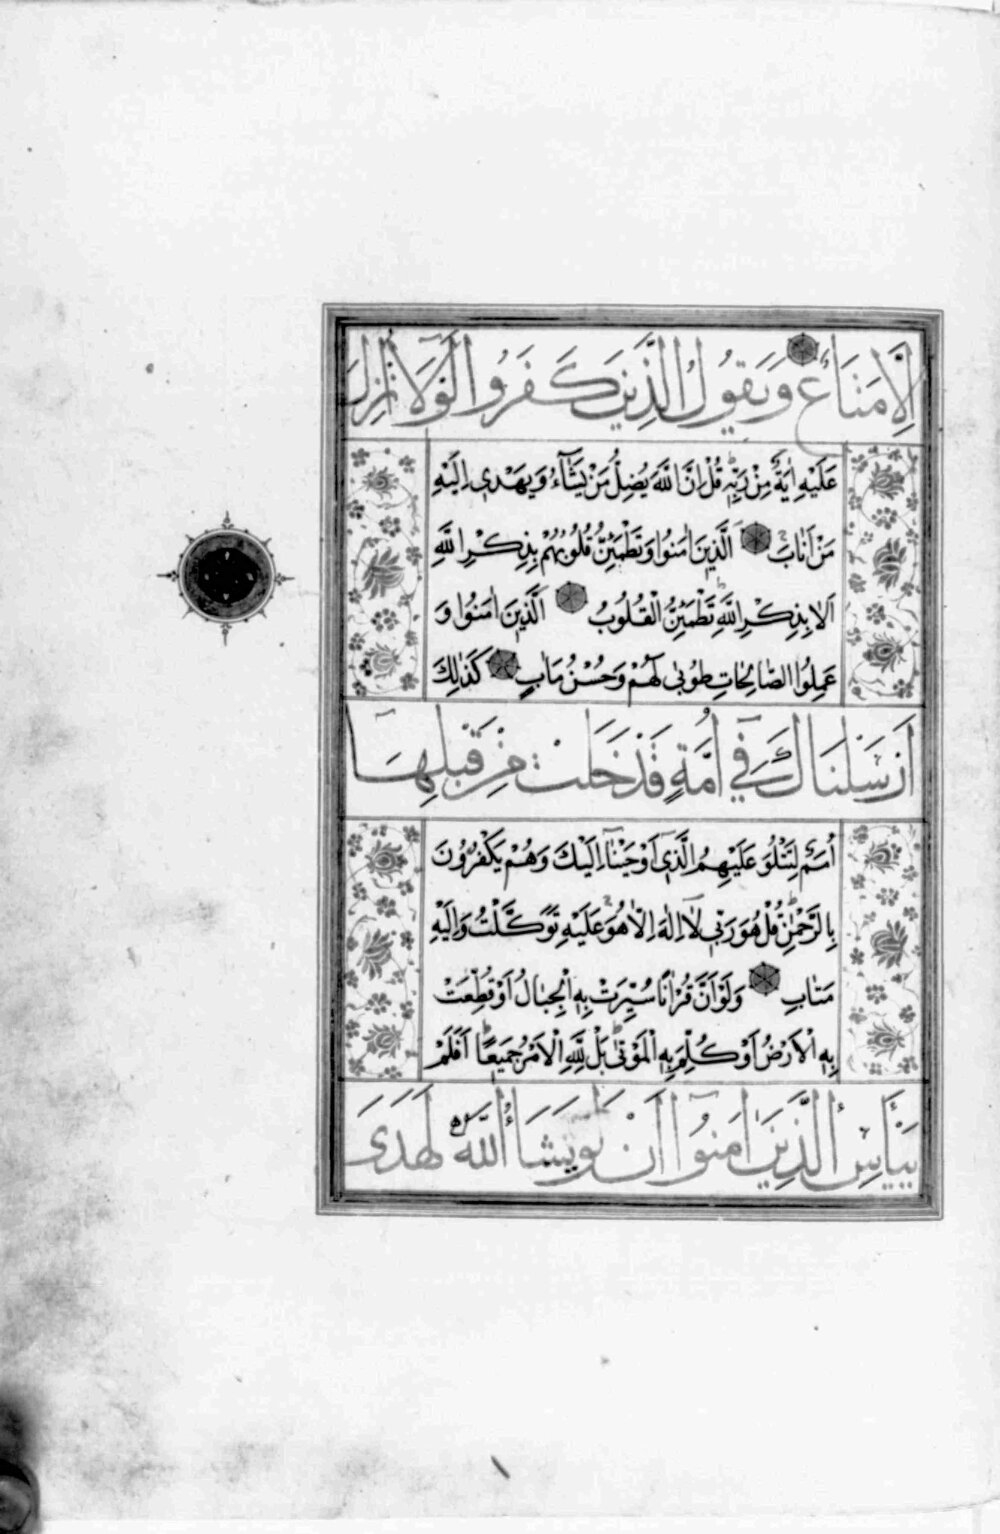 اِلَّا مَتَاعٌ وَيَقُولُ الَّذِينَ كَفَرُوا لَوْلَا اُنْزِلَ
عَلَيْهِ اٰيَةٌ مِنْ رَبِّهٖ قُلْ اِنَّ اللّٰهَ يُضِلُّ مَنْ يَشَٓاءُ وَيَهْدٖٓى اِلَيْهِ
مَنْ اَنَابَ الَّذٖينَ اٰمَنُوا وَتَطْمَئِنُّ قُلُوبُهُمْ بِذِكْرِ اللّٰهِ
اَلَا بِذِكْرِ اللّٰهِ تَطْمَئِنُّ الْقُلُوبُ اَلَّذٖينَ اٰمَنُوا وَ
عَمِلُوا الصَّالِحَاتِ طُوبٰى لَهُمْ وَحُسْنُ مَاٰبٍ كَذٰلِكَ
اَرْسَلْنَاكَ فٖٓى اُمَّةٍ قَدْ خَلَتْ مِنْ قَبْلِهَٓا
اُمَمٌ لِتَتْلُوَ عَلَيْهِمُ الَّذٖٓى اَوْحَيْنَٓا اِلَيْكَ وَهُمْ يَكْفُرُونَ
بِالرَّحْمٰنِ قُلْ هُوَ رَبّٖى لَٓا اِلٰهَ اِلَّا هُوَ عَلَيْهِ تَوَكَّلْتُ وَاِلَيْهِ
مَتَابِ وَلَوْ اَنَّ قُرْاٰنًا سُيِّرَتْ بِهِ الْجِبَالُ اَوْ قُطِّعَتْ
بِهِ الْاَرْضُ اَوْ كُلِّمَ بِهِ الْمَوْتٰى بَلْ لِلّٰهِ الْاَمْرُ جَمٖيعًا اَفَلَمْ
يَيْأَسِ الَّذِينَ اٰمَنُٓوا اَنْ لَوْ يَشَٓاءُ اللّٰهُ لَهَدَى